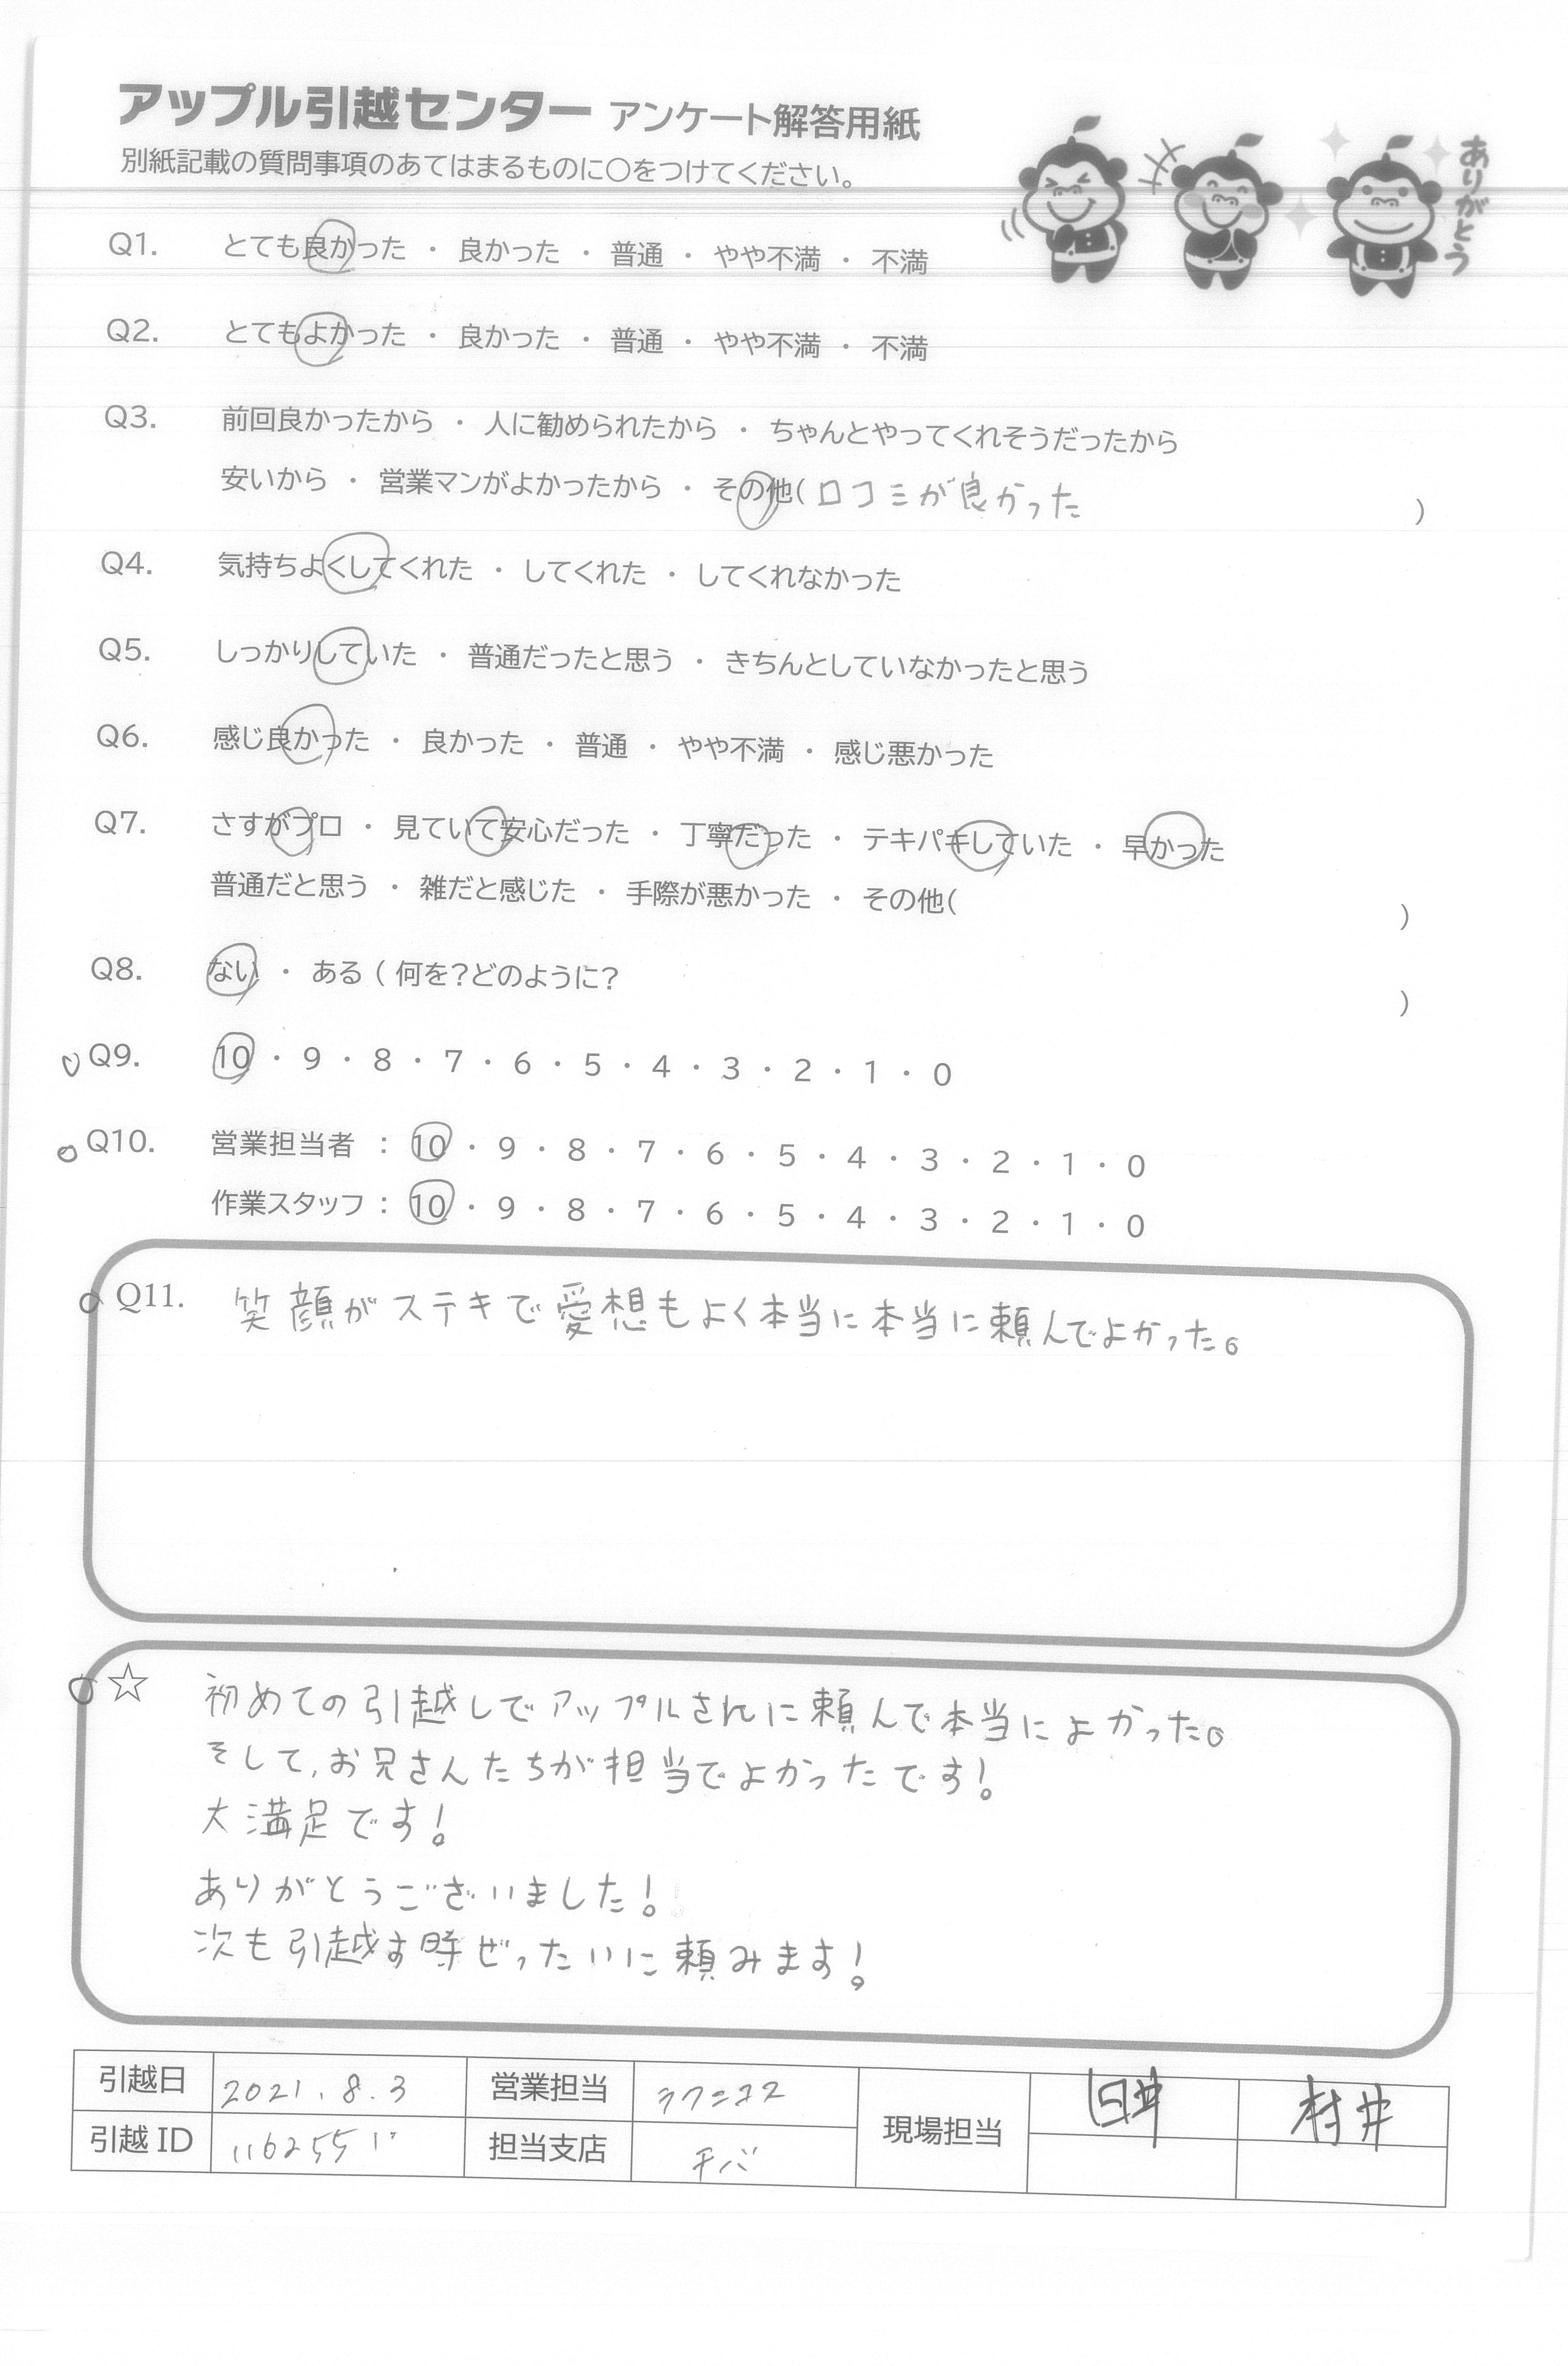 アップル引越センター アンケート解答用紙
別紙記載の質問事項のあてはまるものに○をつけてください。
ありがとう
Q1. とても良かった ・ 良かった ・ 普通 ・ やや不満 ・ 不満
Q2. とてもよかった ・ 良かった ・ 普通 ・ やや不満 ・ 不満
Q3. 前回良かったから ・ 人に勧められたから ・ ちゃんとやってくれそうだったから
安いから ・ 営業マンがよかったから ・ その他( 口コミが良かった )
Q4. 気持ちよくしてくれた ・ してくれた ・ してくれなかった
Q5. しっかりしていた ・ 普通だったと思う ・ きちんとしていなかったと思う
Q6. 感じ良かった ・ 良かった ・ 普通 ・ やや不満 ・ 感じ悪かった
Q7. さすがプロ ・ 見ていて安心だった ・ 丁寧だった ・ テキパキしていた ・ 早かった
普通だと思う ・ 雑だと感じた ・ 手際が悪かった ・ その他( )
Q8. ない ・ ある ( 何を?どのように? )
Q9. 10 ・ 9 ・ 8 ・ 7 ・ 6 ・ 5 ・ 4 ・ 3 ・ 2 ・ 1 ・ 0
Q10. 営業担当者 : 10 ・ 9 ・ 8 ・ 7 ・ 6 ・ 5 ・ 4 ・ 3 ・ 2 ・ 1 ・ 0
作業スタッフ : 10 ・ 9 ・ 8 ・ 7 ・ 6 ・ 5 ・ 4 ・ 3 ・ 2 ・ 1 ・ 0
Q11. 笑顔がステキで愛想もよく本当に本当に頼んでよかった。
☆ 初めての引越しでアップルさんに頼んで本当によかった。
そして、お兄さんたちが担当でよかったです!
大満足です!
ありがとうございました!
次も引越す時ぜったいに頼みます!
引越日 2021.8.3 営業担当 現場担当 臼井 村井
引越 ID 担当支店 チバ